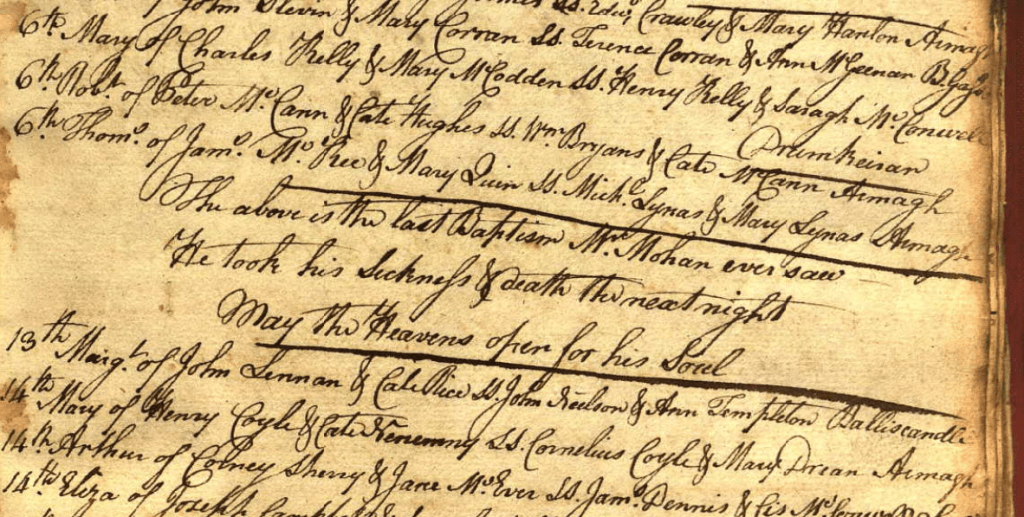 John Slevin & Mary Corran Ss. Terence Corran & Ann McGeenan
6th Mary of Charles Kelly & Mary McCodden Ss. Henry Kelly & Saragh McConwell
Drumkeisan
6th Robt. of Peter McCann & Cate Hughes Ss. Wm Bryans & Cate McCann Armagh
6th Thoms. of Jams. McKee & Mary Quin Ss. Mich. Lynas & Mary Lynas Armagh
The above is the last Baptism Mr. Mohan ever saw
He took his Sickness & death the neat night
May the Heavens open for his Soul
13th Margt. of John Lennan & Cate Rice Ss. John Neelson & Ann Templeton
14th Mary of Henry Coyle & Cate Ss. Cornelius Coyle & Mary Armagh
14th Arthur of Sherry & Jane McEver Ss. Jams. Dennis &
14th Eliza of Joseph